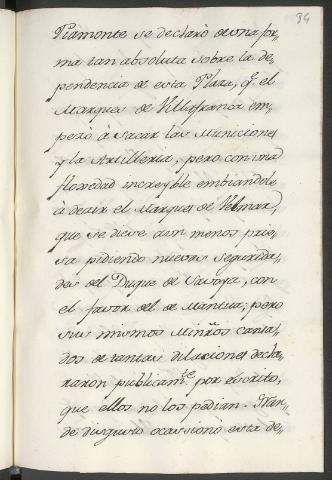 34
Piamonte se declarò de una for,,
ma tan absoluta sobre la de,,
pendencia de esta Plaza, q.e el
Marques de Villafranca em,,
pezò à sacar las Municiones
y la Artilleria, pero con una
floxedad increyble embiandole
à decir el Marques de Velmar,
que se diese aun menos prie,,
sa pidiendo nuevas segurida,,
des del Duque de Saboya, con
el favor del de Mantua; pero
sus mismos Minros cansa,,
dos de tantas dilaciones decla,,
raron publicam.te por escrito,
que ellos no los pedian. Gran,,
de disgusto ocassionò esta de,,